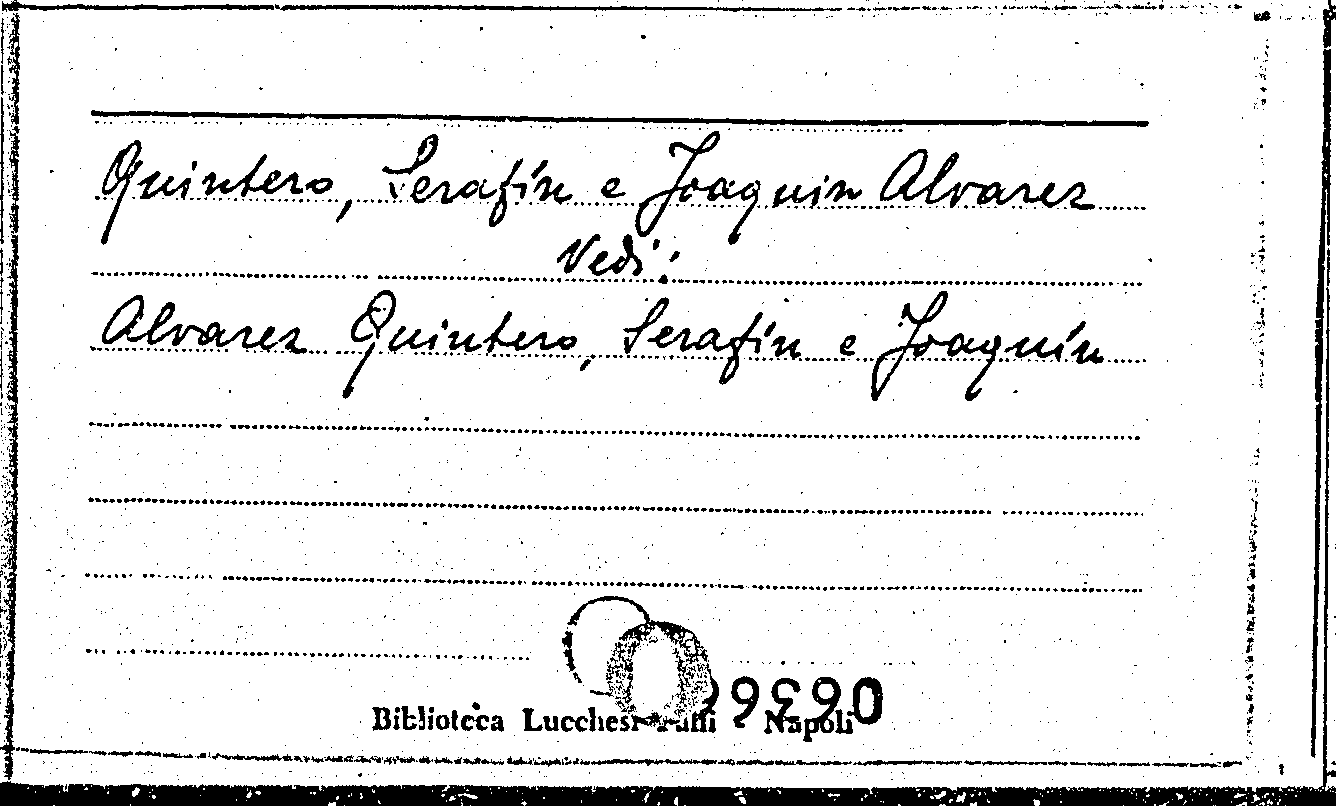 Quintero, Serafín e Joaquin Alvarez
Vedi:
Alvarez Quintero, Serafín e Joaquín
Biblioteca Lucchesi Palli - Napoli